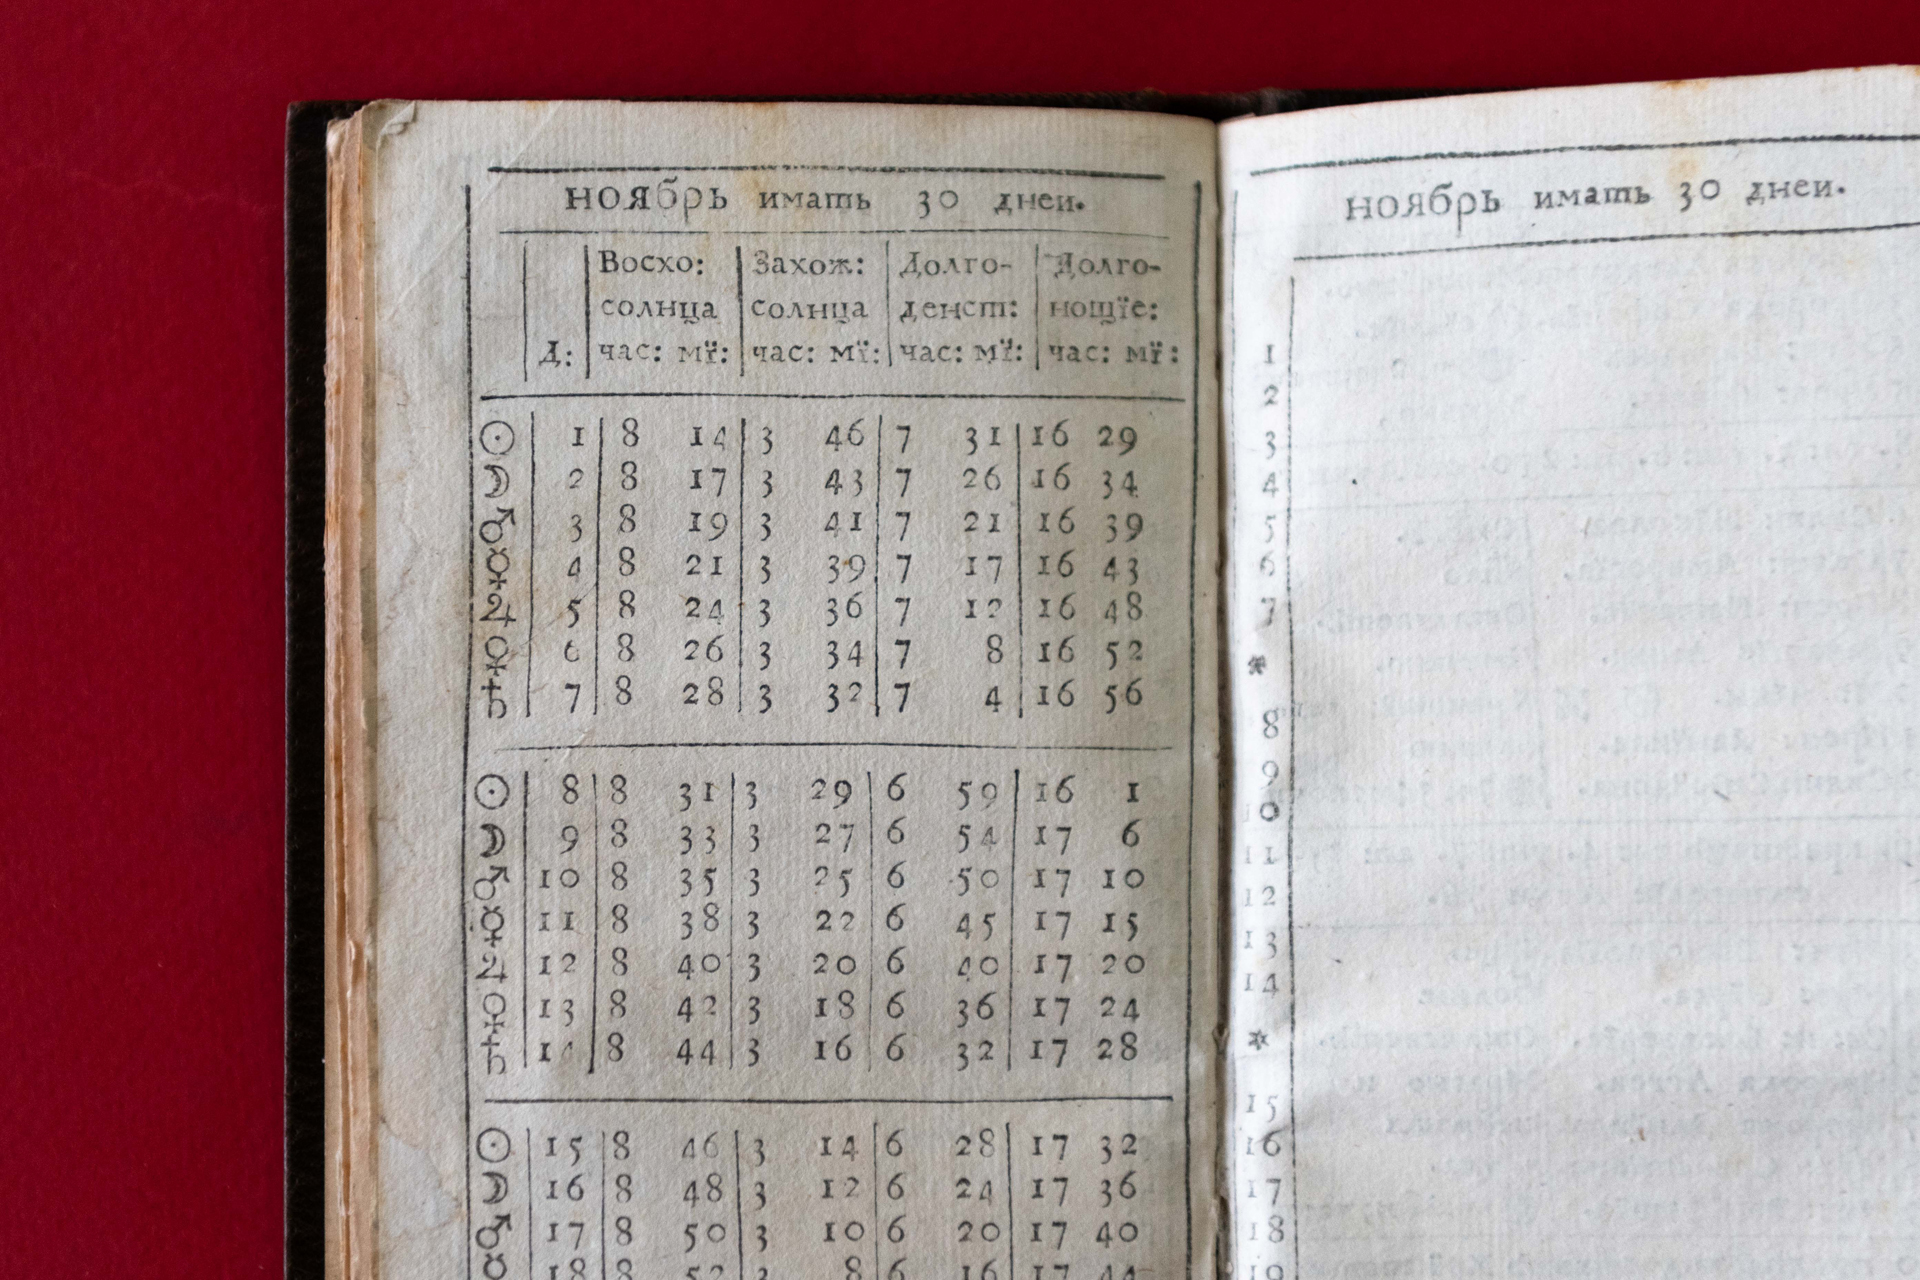 ноябрь имать 30 дней.
Восхо: Захож: Долго- Долго-
солнца солнца денст: нощїе:
Д: час: мї: час: мї: час: мї: час: мї:
☉ 1 8 14 3 46 7 31 16 29
☽ 2 8 17 3 43 7 26 16 34
♂ 3 8 19 3 41 7 21 16 39
☿ 4 8 21 3 39 7 17 16 43
♃ 5 8 24 3 36 7 12 16 48
♀ 6 8 26 3 34 7 8 16 52
♄ 7 8 28 3 32 7 4 16 56
☉ 8 8 31 3 29 6 59 16 1
☽ 9 8 33 3 27 6 54 17 6
♂ 10 8 35 3 25 6 50 17 10
☿ 11 8 38 3 22 6 45 17 15
♃ 12 8 40 3 20 6 40 17 20
♀ 13 8 42 3 18 6 36 17 24
♄ 14 8 44 3 16 6 32 17 28
☉ 15 8 46 3 14 6 28 17 32
☽ 16 8 48 3 12 6 24 17 36
♂ 17 8 50 3 10 6 20 17 40
☿ 18 8 52 3 8 6 16 17 44
ноябрь имать 30 дней.
1
2
3
4
5
6
7
*
8
9
10
11
12
13
14
*
15
16
17
18
19